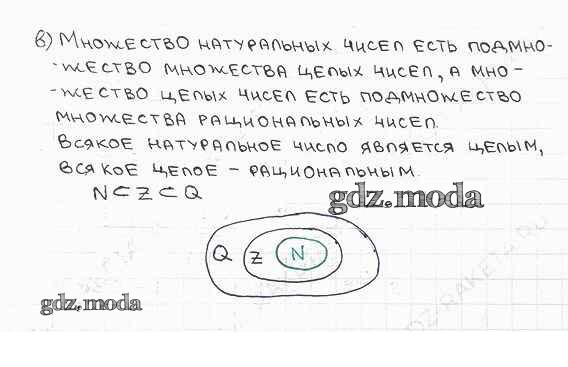 в) Множество натуральных чисел есть подмно-
-жество множества целых чисел, а мно-
-жество целых чисел есть подмножество
множества рациональных чисел.
Всякое натуральное число является целым,
всякое целое – рациональным.
N ⊂ Z ⊂ Q
gdz.moda
Q Z N
gdz.moda